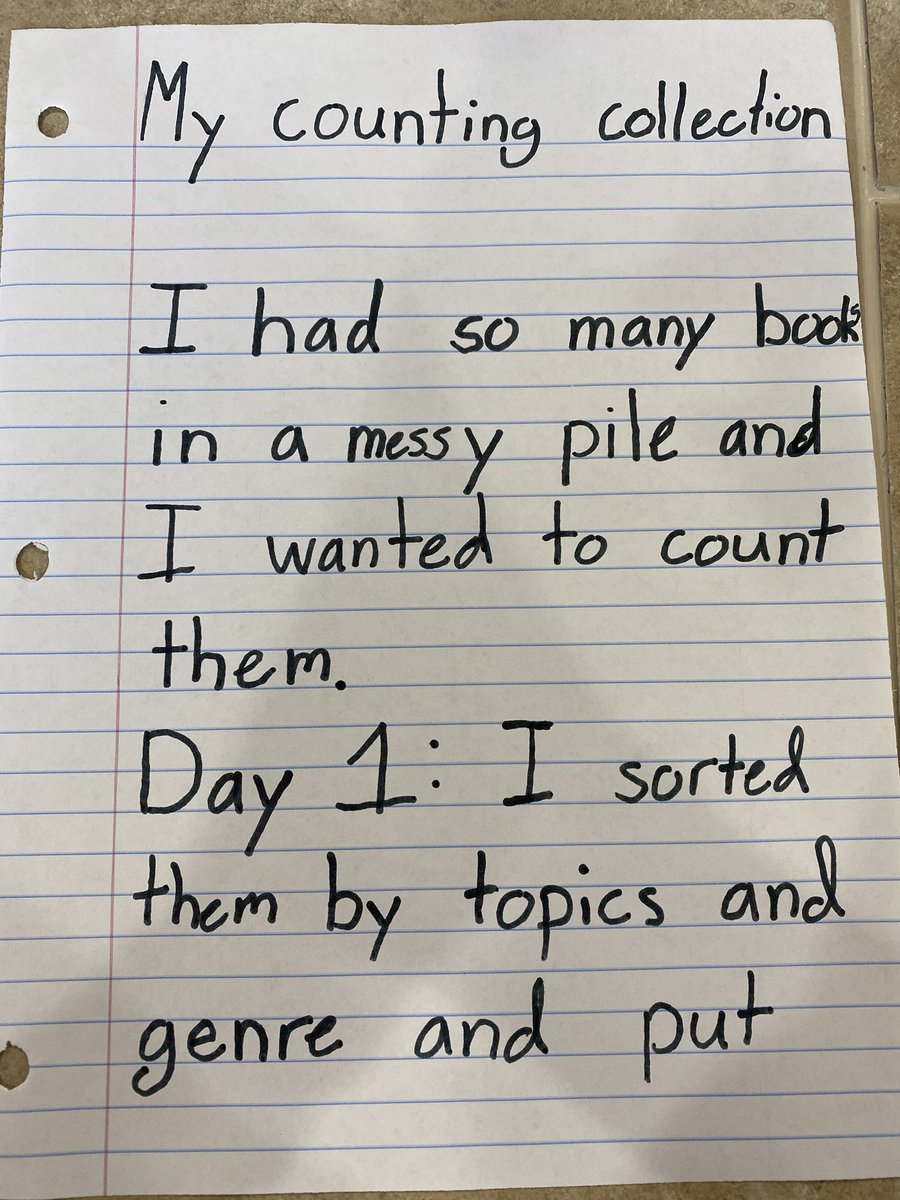 My counting collection
I had so many books
in a messy pile and
I wanted to count
them.
Day 1: I sorted
them by topics and
genre and put